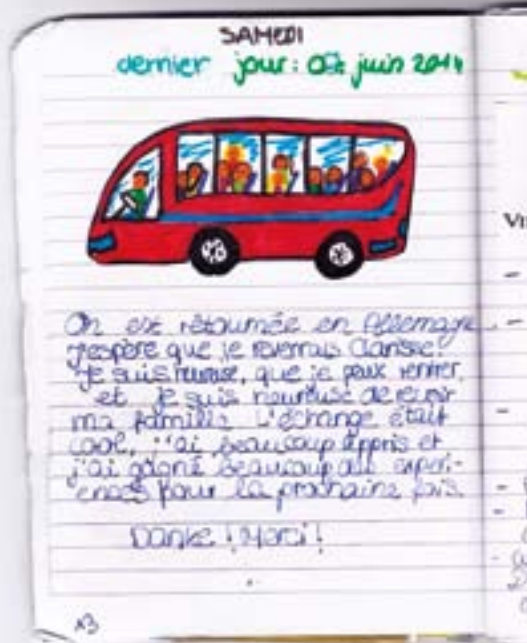 SAMEDI
dernier jour: juin 2014
On est rétournée en Allemagne
j'espère que je reverrais Clarisse!
Je suis heureuse, que je peux rentrer
et je suis heureuse de revoir
ma famille L'échange était
cool, j'ai beaucoup appris et
j'ai gagné beaucoup experi-
ences pour la prochaine fois.
Danke! Merci!
13